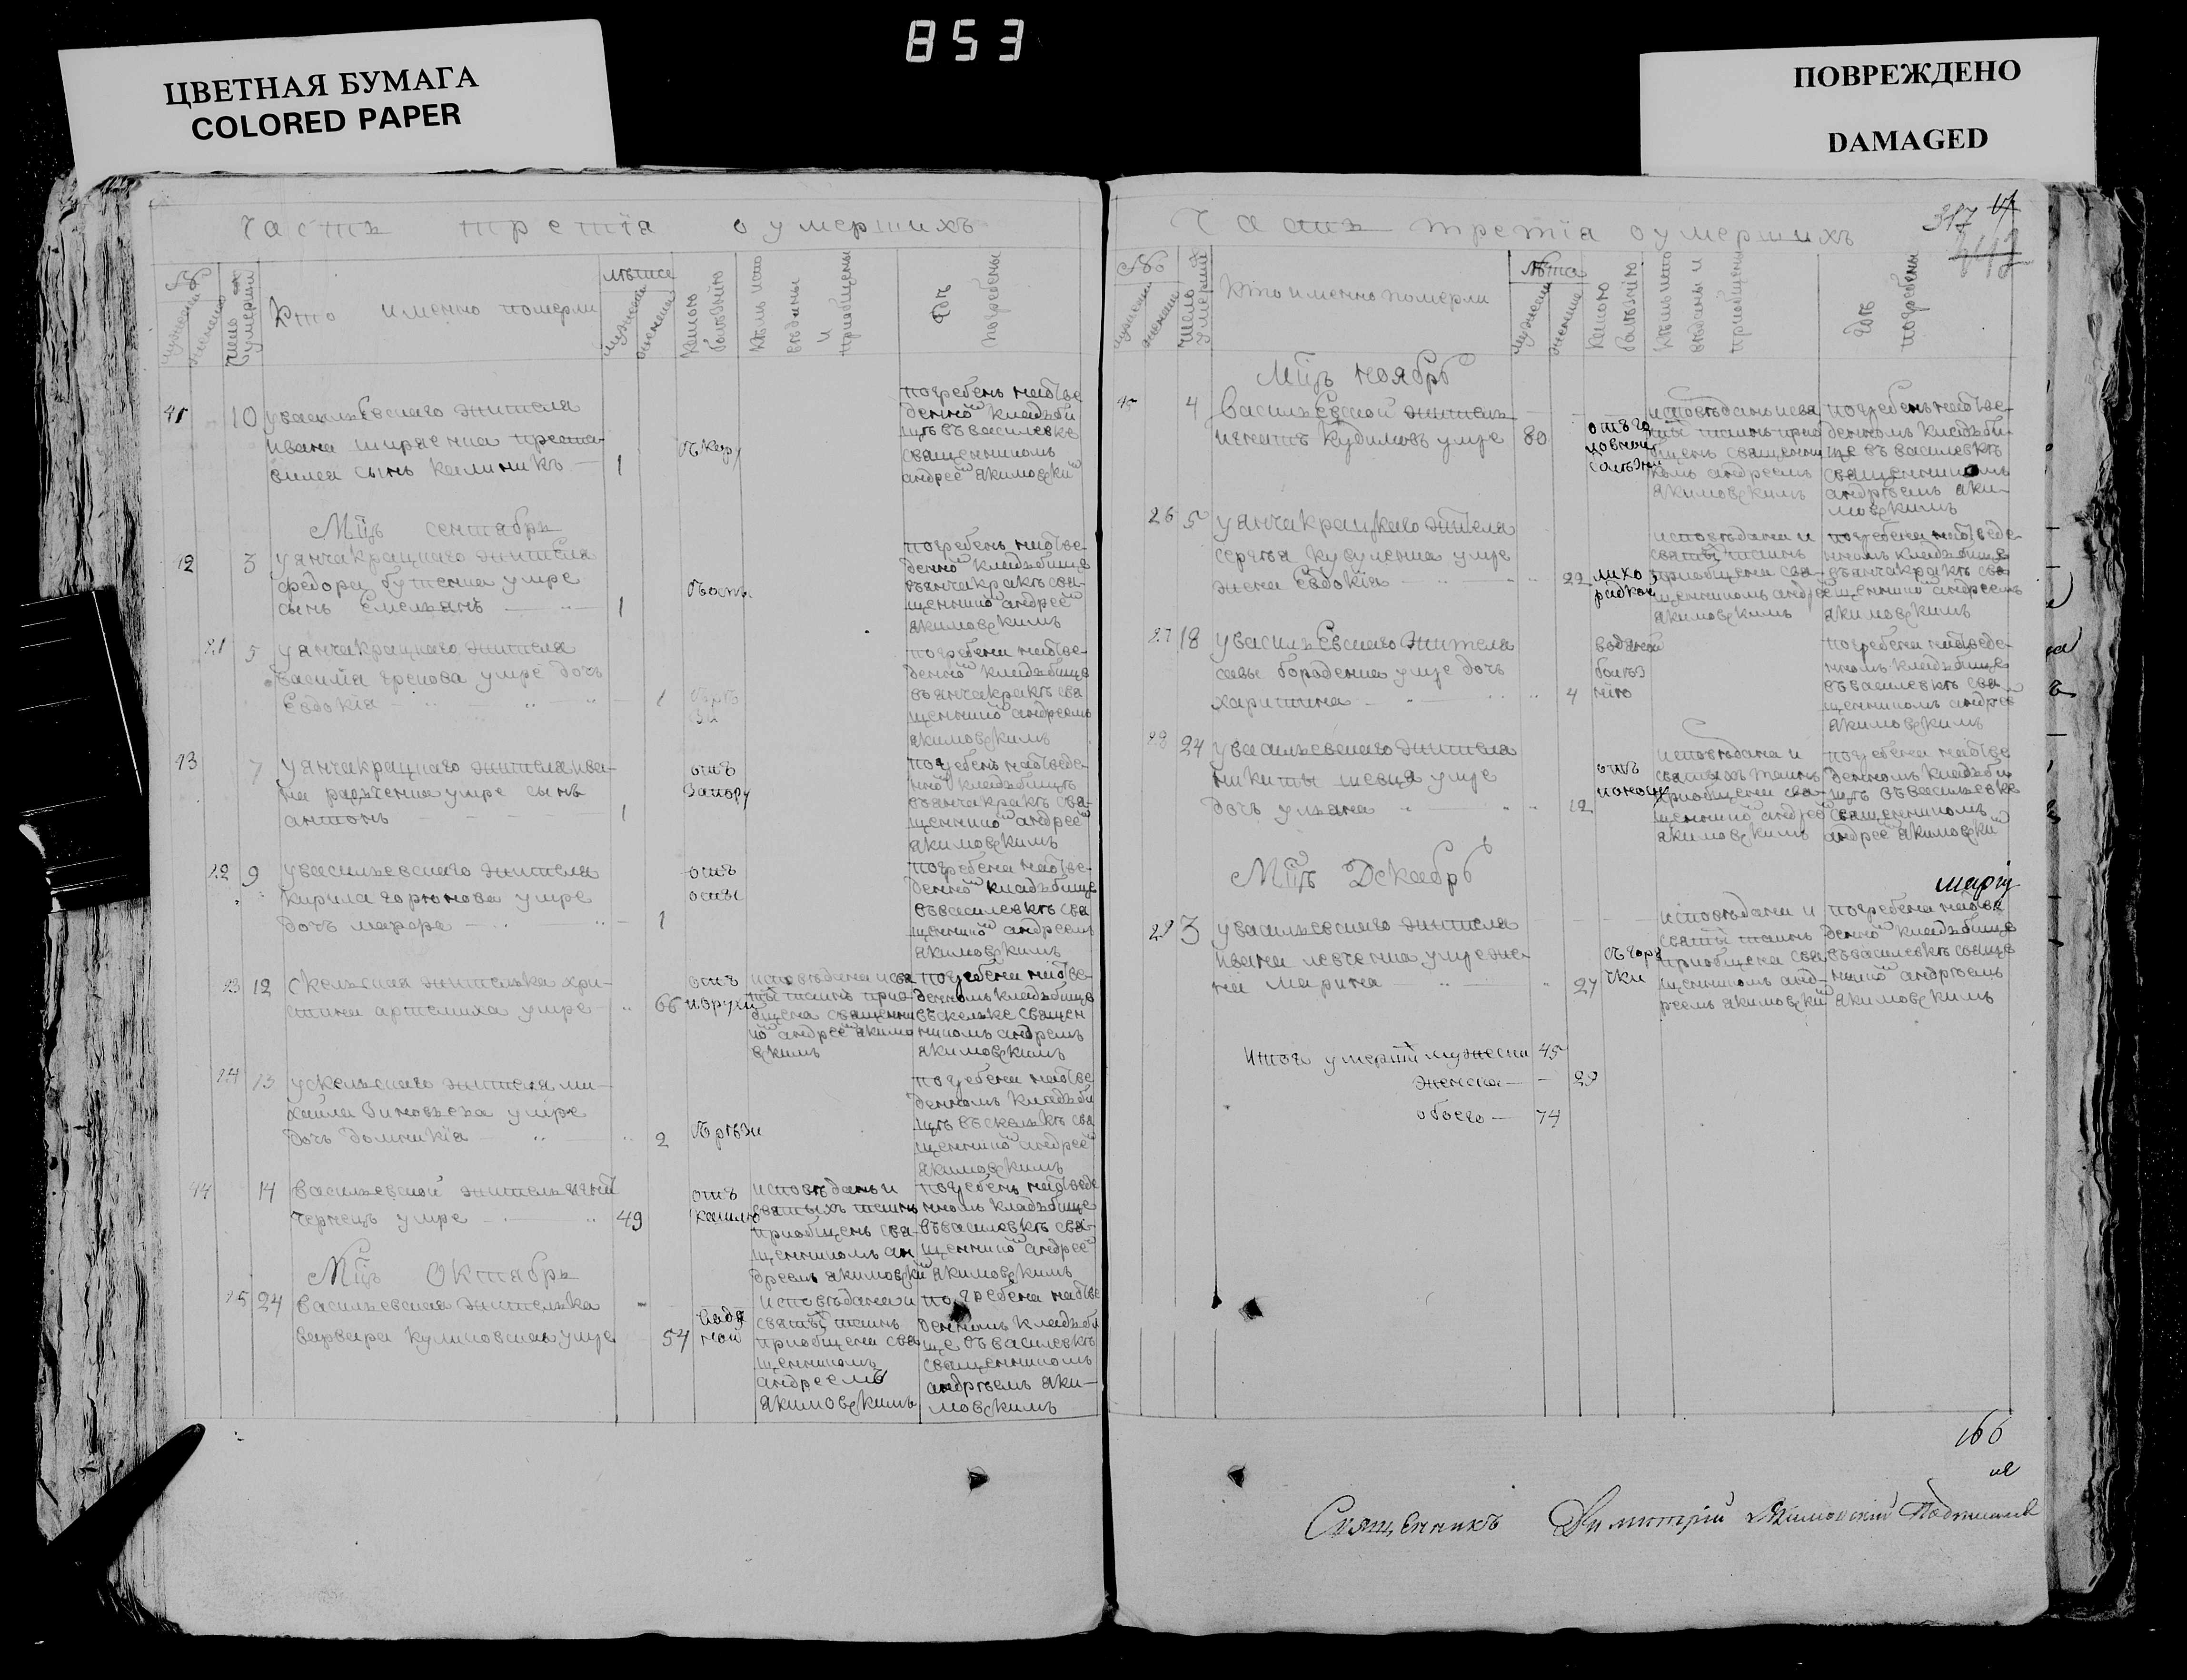 853
ЦВЕТНАЯ БУМАГА
COLORED PAPER
ПОВРЕЖДЕНО
DAMAGED
часть третїа о умершихъ
Кто именно померли
лѣта
Какою болѣзнїю
Кѣмъ исповѣданы и приобщены
Гдѣ погребены
41 10 у василъевскаго жителя
ивана ширяенка преста-
вился сынъ калиникъ — 1
погребенъ на отве-
денно кладъби
щѣ въ василевке
священникомъ
андрее якимовски
Мцъ сентябръ
12 3 у янчакрацкаго жителя
федора бутенка умре
сынъ Емелъянъ — 1
погребенъ на отве-
денно кладъбище
въ янчакракѣ свя-
щеннико андрее
якимовскимъ
21 5 у янчакрацкаго жителя
василїа грекова умре дочъ
Евдокїа 1
погребена на отве-
денно кладъбище
въ янчакракѣ свя
щеннико андреемъ
якимовскимъ
13 7 у янчакрацкаго жителя ива-
на умре сынъ
антонъ 1
отъ
запору
погребенъ на отведе-
нно кладъбищѣ
въ янчакракѣ свя-
щеннико андрее
якимовскимъ
22 9 у василъевскаго жителя
кирила горюнова умре
дочъ мавра 1
отъ
оспы
погребена на отве-
денно кладъбище
въ василевкѣ свя
щеннико андреемъ
якимовскимъ
23 12 скелъская жителъка хри-
стина артемиха умре 66
отъ
исповѣдана и свя
ты таинъ прио-
бщена священни
ко андрее якимо
вскимъ
погребена на отве-
денномъ кладъбище
въ скелъке священ
никомъ андреемъ
якимовскимъ
24 13 у скелъскаго жителя ми-
хаила зиновъева умре
дочъ домникїа 2
погребена на отве
денномъ кладъби
щѣ въ скелъкѣ свя
щеннико андрее
якимовскимъ
44 14 василъевской жителъ
чернецъ умре 49
отъ
кашлю
исповѣданъ и
святыхъ таинъ
приобщенъ свя-
щенникомъ ан
дреемъ якимовски
погребенъ на отведе
нномъ кладъбище
въ василевкѣ свя-
щеннико андрее
якимовскимъ
Мцъ Октябръ
25 24 василъевская жителъка
варвара куликовская умре 54
водя
ной
исповѣдана и
святы таинъ
приобщена свя
щенникомъ
андреемъ
якимовскимъ
погребена на отве
денномъ кладъби
ще въ василевкѣ
священникомъ
андрѣемъ яки-
мовскимъ
317
Часть третїа о умершихъ
№
Кто именно померли
лѣта
Какою болѣзнїю
Кѣмъ исповѣданы и приобщены
гдѣ погребены
Мцъ ноябръ
45 4 василъевской жителъ
игнатъ кудимовъ умре 80
отъ го
ловной
болѣзни
исповѣданъ и свя
ты таинъ прио
бщенъ священни
комъ андреемъ
якимовскимъ
погребенъ на отве-
денномъ кладъби-
ще въ василевкѣ
священникомъ
андрѣемъ яки-
мовскимъ
26 5 у янчакрацкаго жителя
сергѣя умре
жена Евдокїа 22
лихо
радкой
исповѣдана и
святы таинъ
приобщена свя-
щенникомъ андре
якимовскимъ
погребена на отведе
нномъ кладъбище
въ янчакракѣ свя
щеннико андреемъ
якимовскимъ
27 18 у василъЕвскаго жителя
савы бороденка умре дочъ
харитина 4
водяной
болѣз
нїю
погребена на отведе-
нномъ кладъбище
въ василевкѣ свя
щенникомъ андрее
якимовскимъ
28 24 у василъевскаго жителя
никиты шевця умре
дочъ улъяна 12
отъ
поносу
исповѣдана и
святыхъ таинъ
приобщена свя-
щеннико андрее
якимовскимъ
погребена на отве
денномъ кладъби
щѣ въ василъевке
священникомъ
андрее якимовски
Мцъ Декабръ
29 3 у василъевскаго жителя
ивана левченка умре же-
на марина 27
ѿ горя
чки
исповѣдана и
святы таинъ
приобщена свя
щенникомъ анд-
реемъ якимовски
погребена на отве
денно кладъбище
въ василевкѣ свяще
нико андрѣемъ
якимовскимъ
Итого умерши мужеска 45
женска — 29
обоего — 74
166
Священникъ Димитрїй Якимовскїй